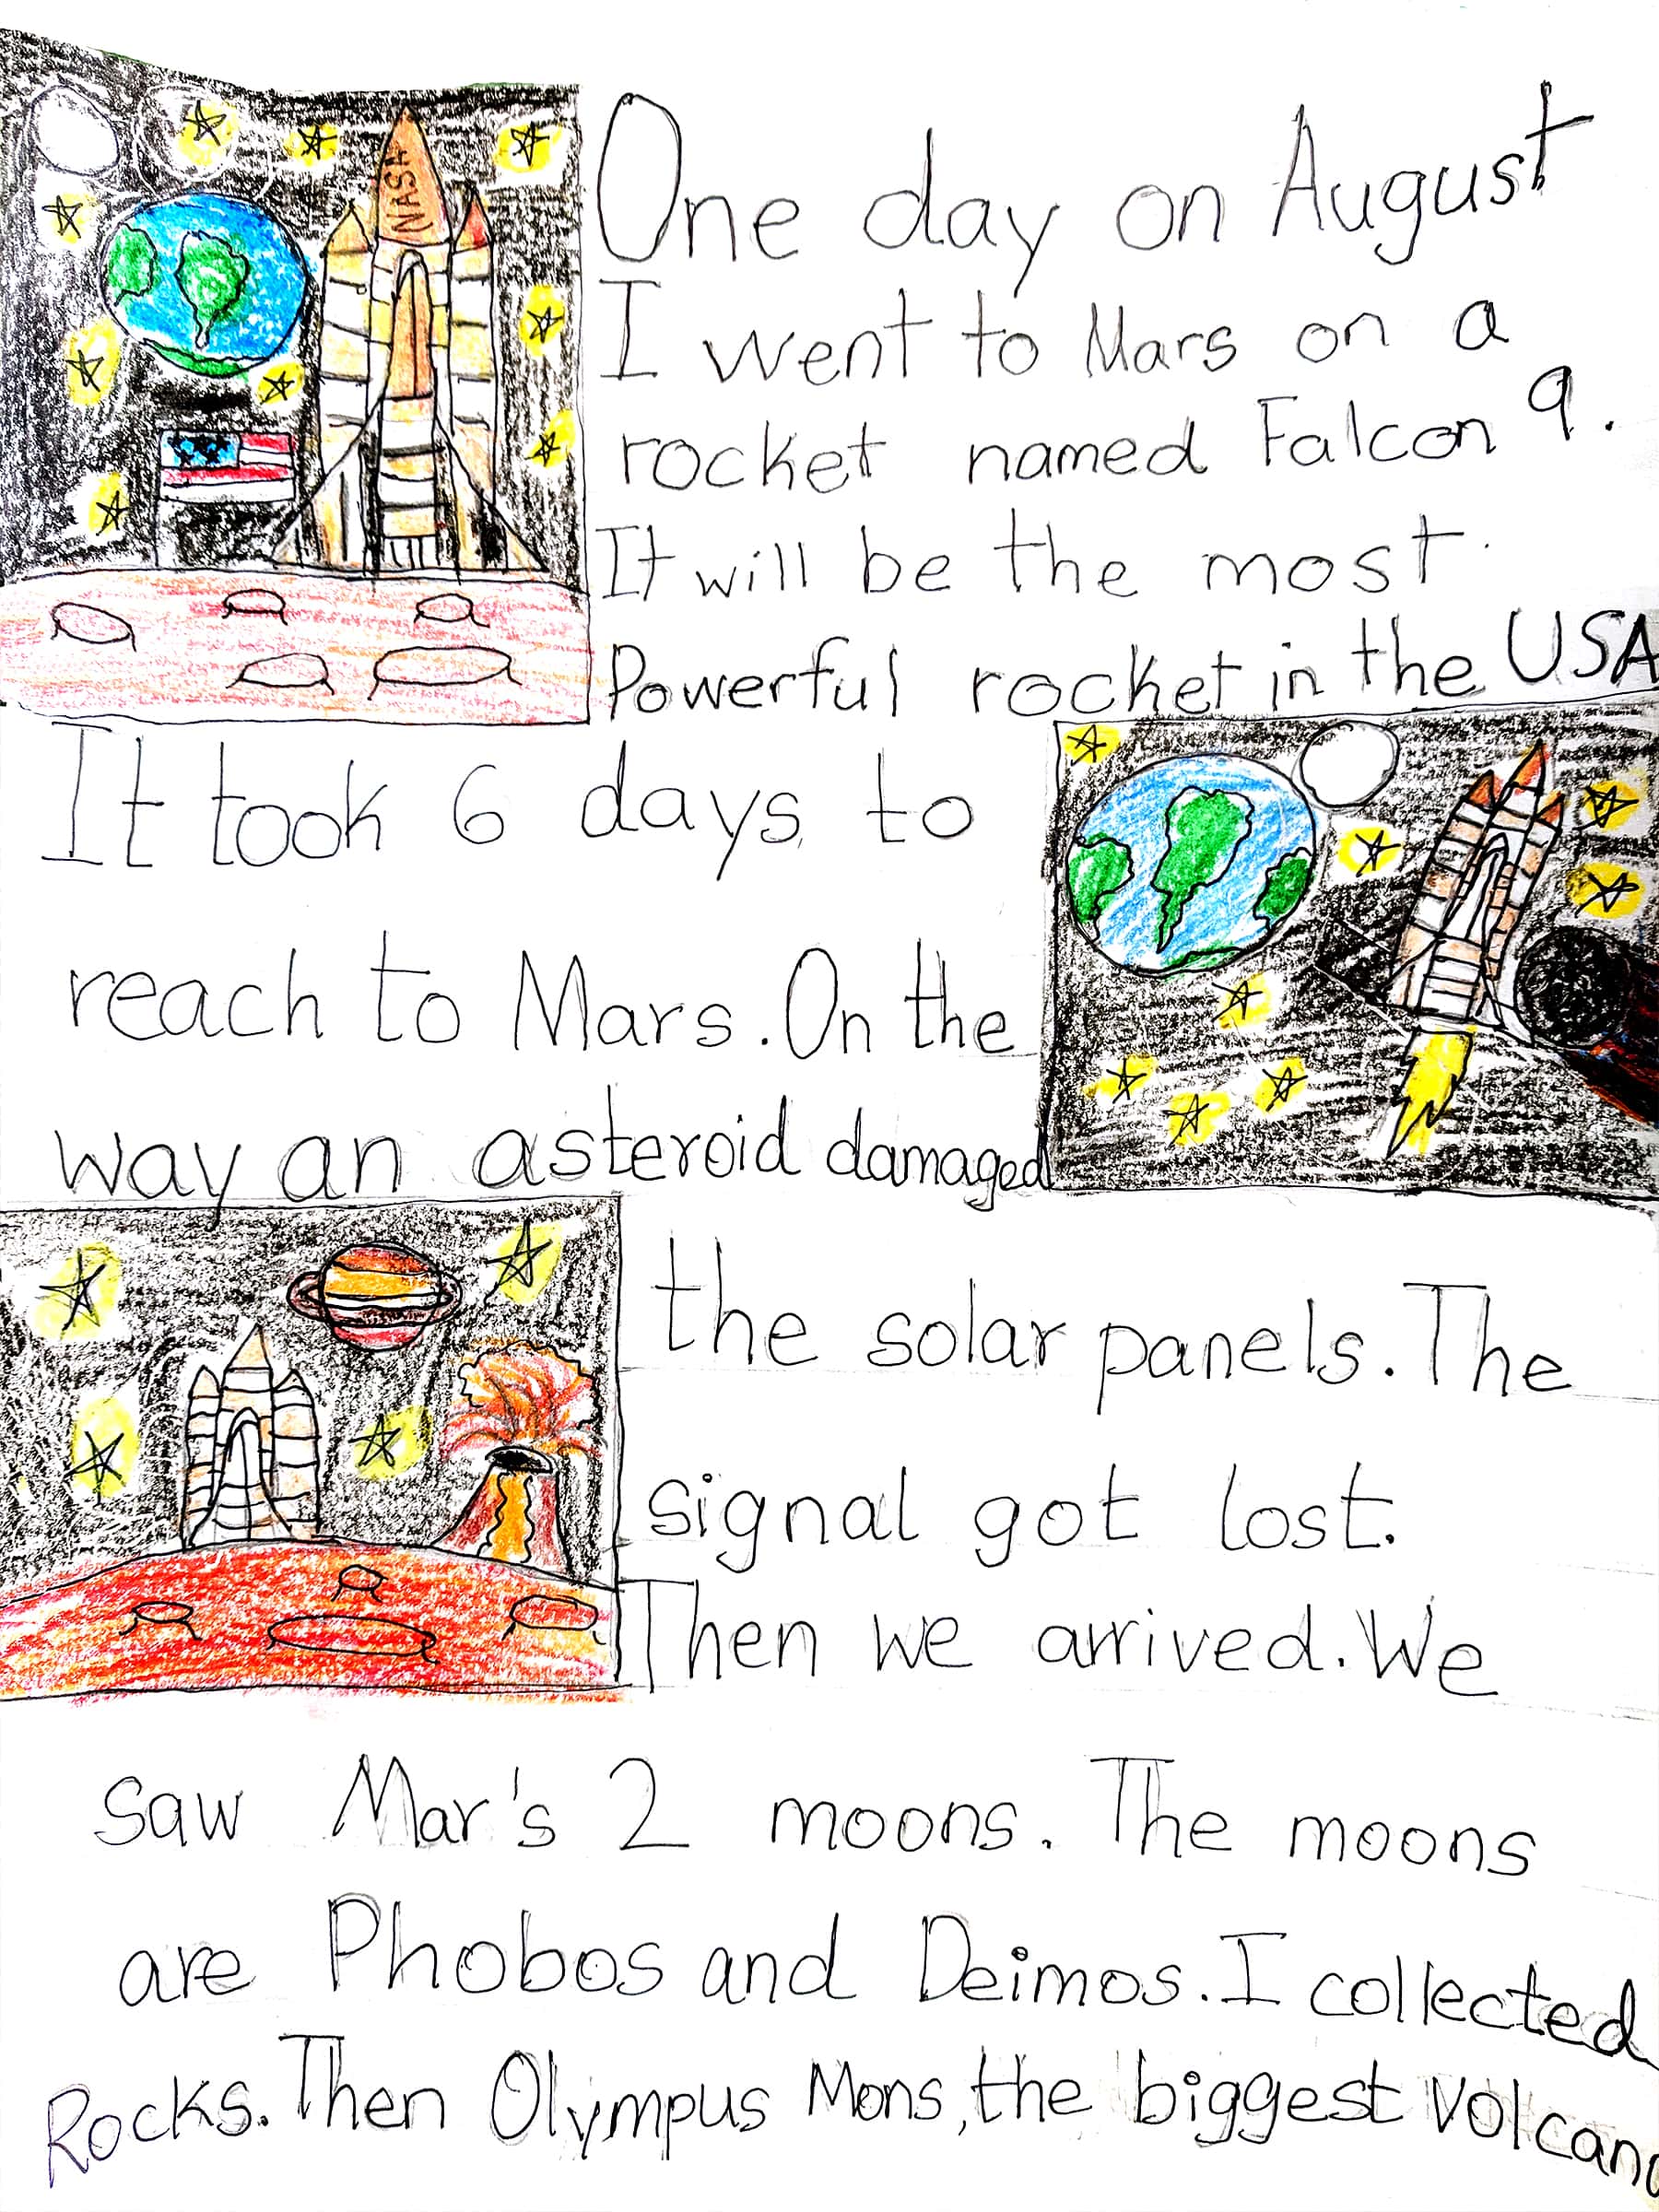 NASA
One day on August
I went to Mars on a
rocket named Falcon 9.
It will be the most
Powerful rocket in the USA
It took 6 days to
reach to Mars. On the
way an asteroid damaged
the solar panels. The
signal got lost.
Then we arrived. We
saw Mar's 2 moons. The moons
are Phobos and Deimos. I collected
Rocks. Then Olympus Mons, the biggest volcano